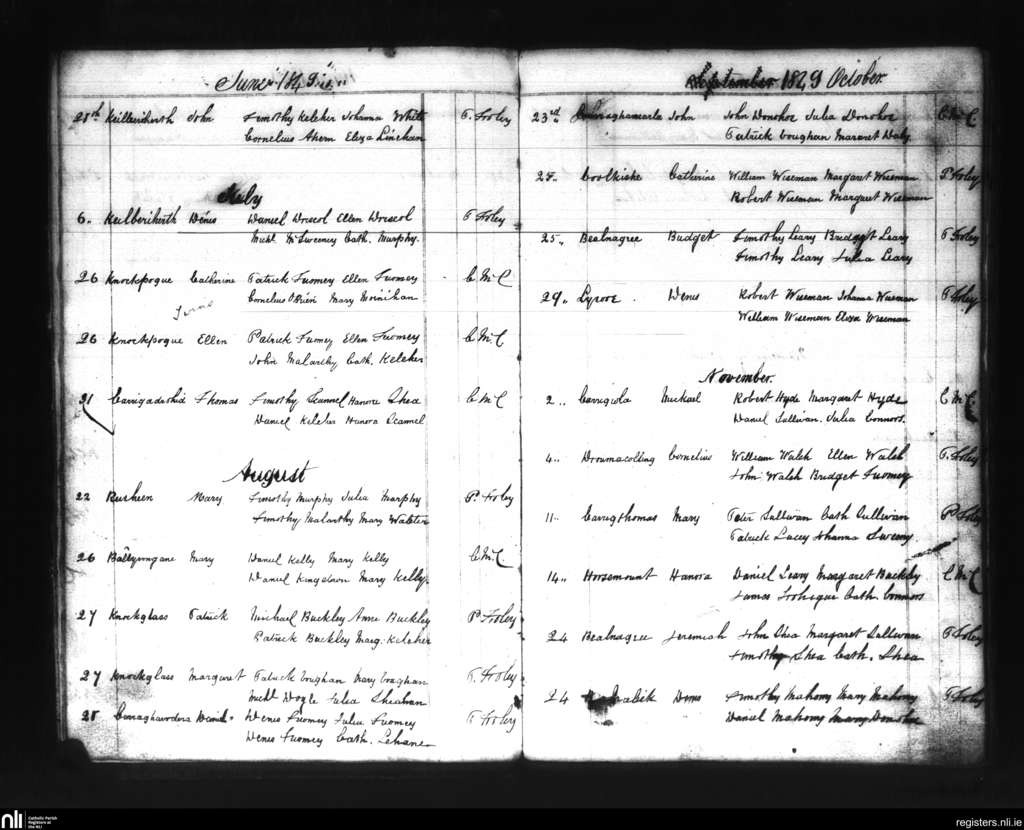 June 1849
28th Keilberihirth John Timothy Keleher Johanna White T. Foley
Cornelius Ahern Eliza Linehan
July
6 " Keilberihirth Denis Daniel Driscol Ellen Driscol T Foley
Michl McSweeney Cath. Murphy.
26 Knockpogue Catherine Patrick Twomey Ellen Twomey C McC
Cornelius O'Brien Mary Moinihan
26 Knockpogue Ellen Patrick Twomey Ellen Twomey C McC
John Malarthy Cath. Keleher
31 Carrigadashid Thomas Timothy Scannel Hanora Shea C McC
Daniel Keleher Hanora Scannel
August
22 Rusheen Mary Timothy Murphy Julia Murphy P. Foley
Timothy Malarthy Mary Walster
26 Mary Daniel Kelly Mary Kelly C McC
Daniel Kingston Mary Kelly.
27 Knockglass Patrick Michael Buckley Anne Buckley P Foley
Patrick Buckley Marg. Keleher
27 Knockglass Margaret Patrick Coughan Mary Coughan T. Foley
Michl Dogle Julia Sheehan
28 Danl. Denis Twomey Julia Twomey T Foley
Denis Twomey Cath. Lehane
September 1849 October
23rd John John Donohoe Julia Donohoe C McC
Patrick Coughan Margaret Daly
24 " Coolkiske Catherine William Wiseman Margaret Wiseman P Foley
Robert Wiseman Margaret Wiseman
25 " Bealnagree Budget Timothy Leary Bridget Leary T Foley
Timothy Leary Julia Leary
29 " Denis Robert Wiseman Johanna Wiseman T Foley
William Wiseman Eliza Wiseman
November.
2 " Carrigiola Michael Robert Hyde Margaret Hyde C McC
Daniel Sullivan. Julia Connors.
4 " Cornelius William Walsh Ellen Walsh T. Foley
John Walsh Bridget Twomey
11 " Carrigthomas Mary Peter Sullivan Cath Sullivan P Foley
Patrick Lucey Johanna Sweeny
14 " Horsemount Hanora Daniel Leary Margaret Buckley C McC
James Cath. Connors
24 Bealnagree Jeremiah John Shea Margaret Sullivan T Foley
Timothy Shea Cath. Shea
24 Denis Timothy Mahony Mary Mahony T Foley
Daniel Mahony Mary Donohoe
nli
Catholic Parish
Registers at
the NLI
registers.nli.ie